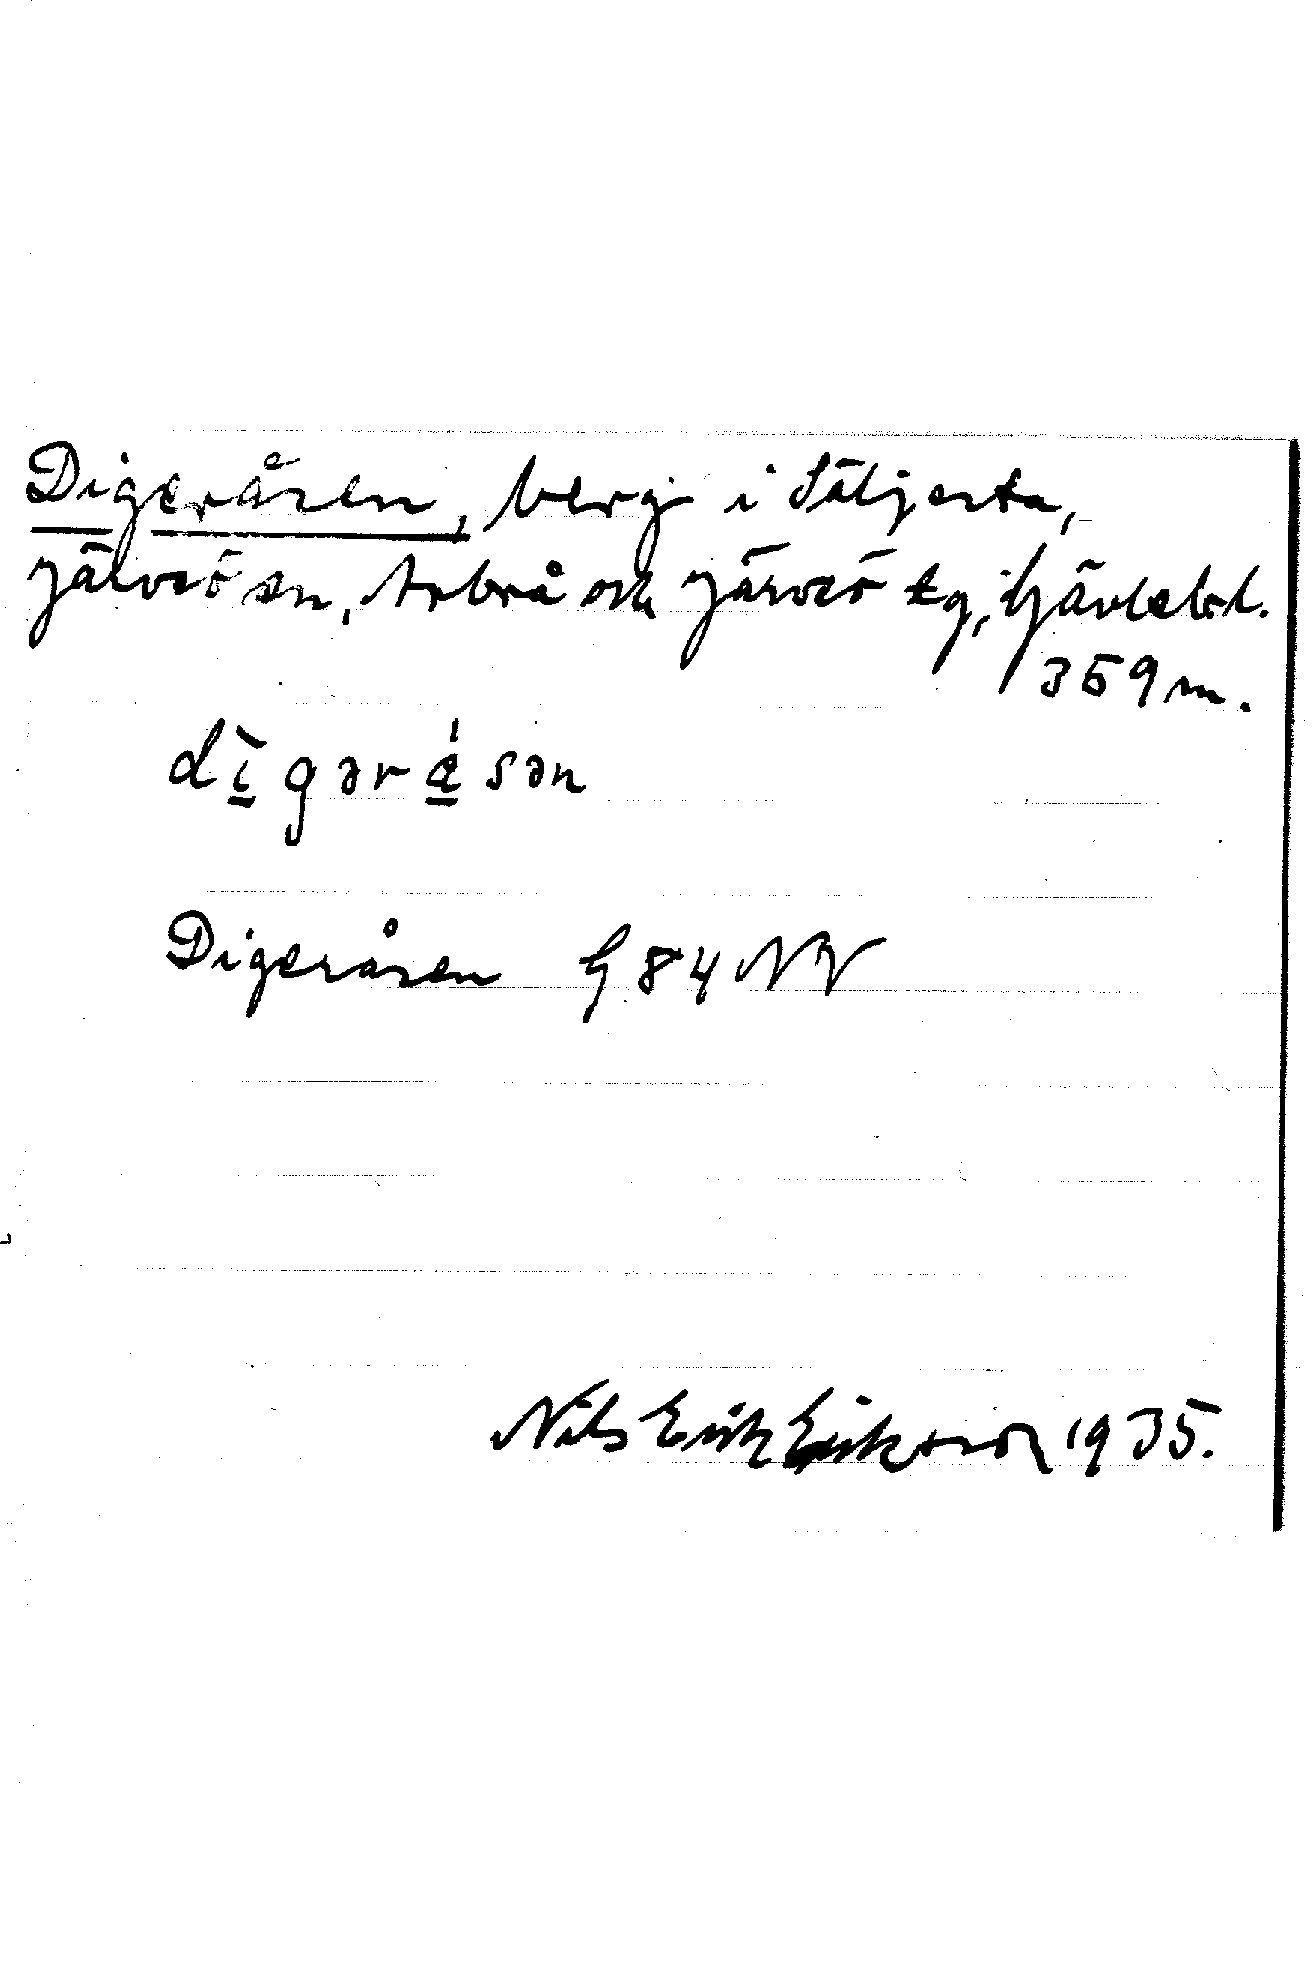 Digeråsen, berg i Säljesta,
Järvsö sn, Arbrå och Järvsö tg, Gävlebl.
359 m.
dìgərå̀sən
Digeråsen G 84 NV
Nils Erik Eriksson 1935.